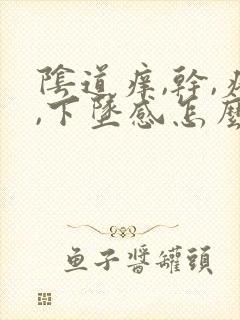 陰道痒,幹,
,下墜感怎麼
鱼子醬罐頭